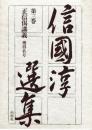 信國淳
選集
第三巻
正信偈講義
柏樹社